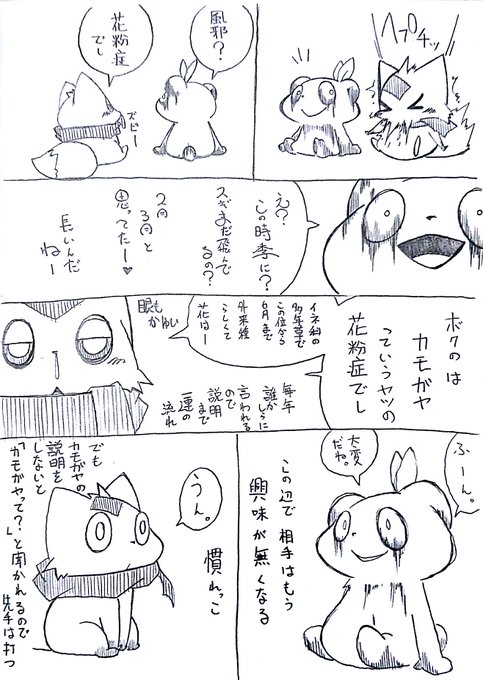 ヘプチッ
風邪？
花粉症
でし
ズビー
え？
この時季に？
スギまだ飛んで
るの？
2月
3月と
思ってたー♥
長いんだ
ねー
ボクのは
カモガヤ
っていうヤツの
花粉症でし
イネ科の
多年草で
この位から
6月まで
外来種
らしくて
花はー
眼も
かゆい
毎年
誰かしらに
言われる
ので
説明
まで
一連の
流れ
ふーん。
大変
だね。
この辺で相手はもう
興味が無くなる
うん。
慣れっこ
でも
カモガヤの
説明を
しないと
「カモガヤって？」と聞かれるので
先手は打つ